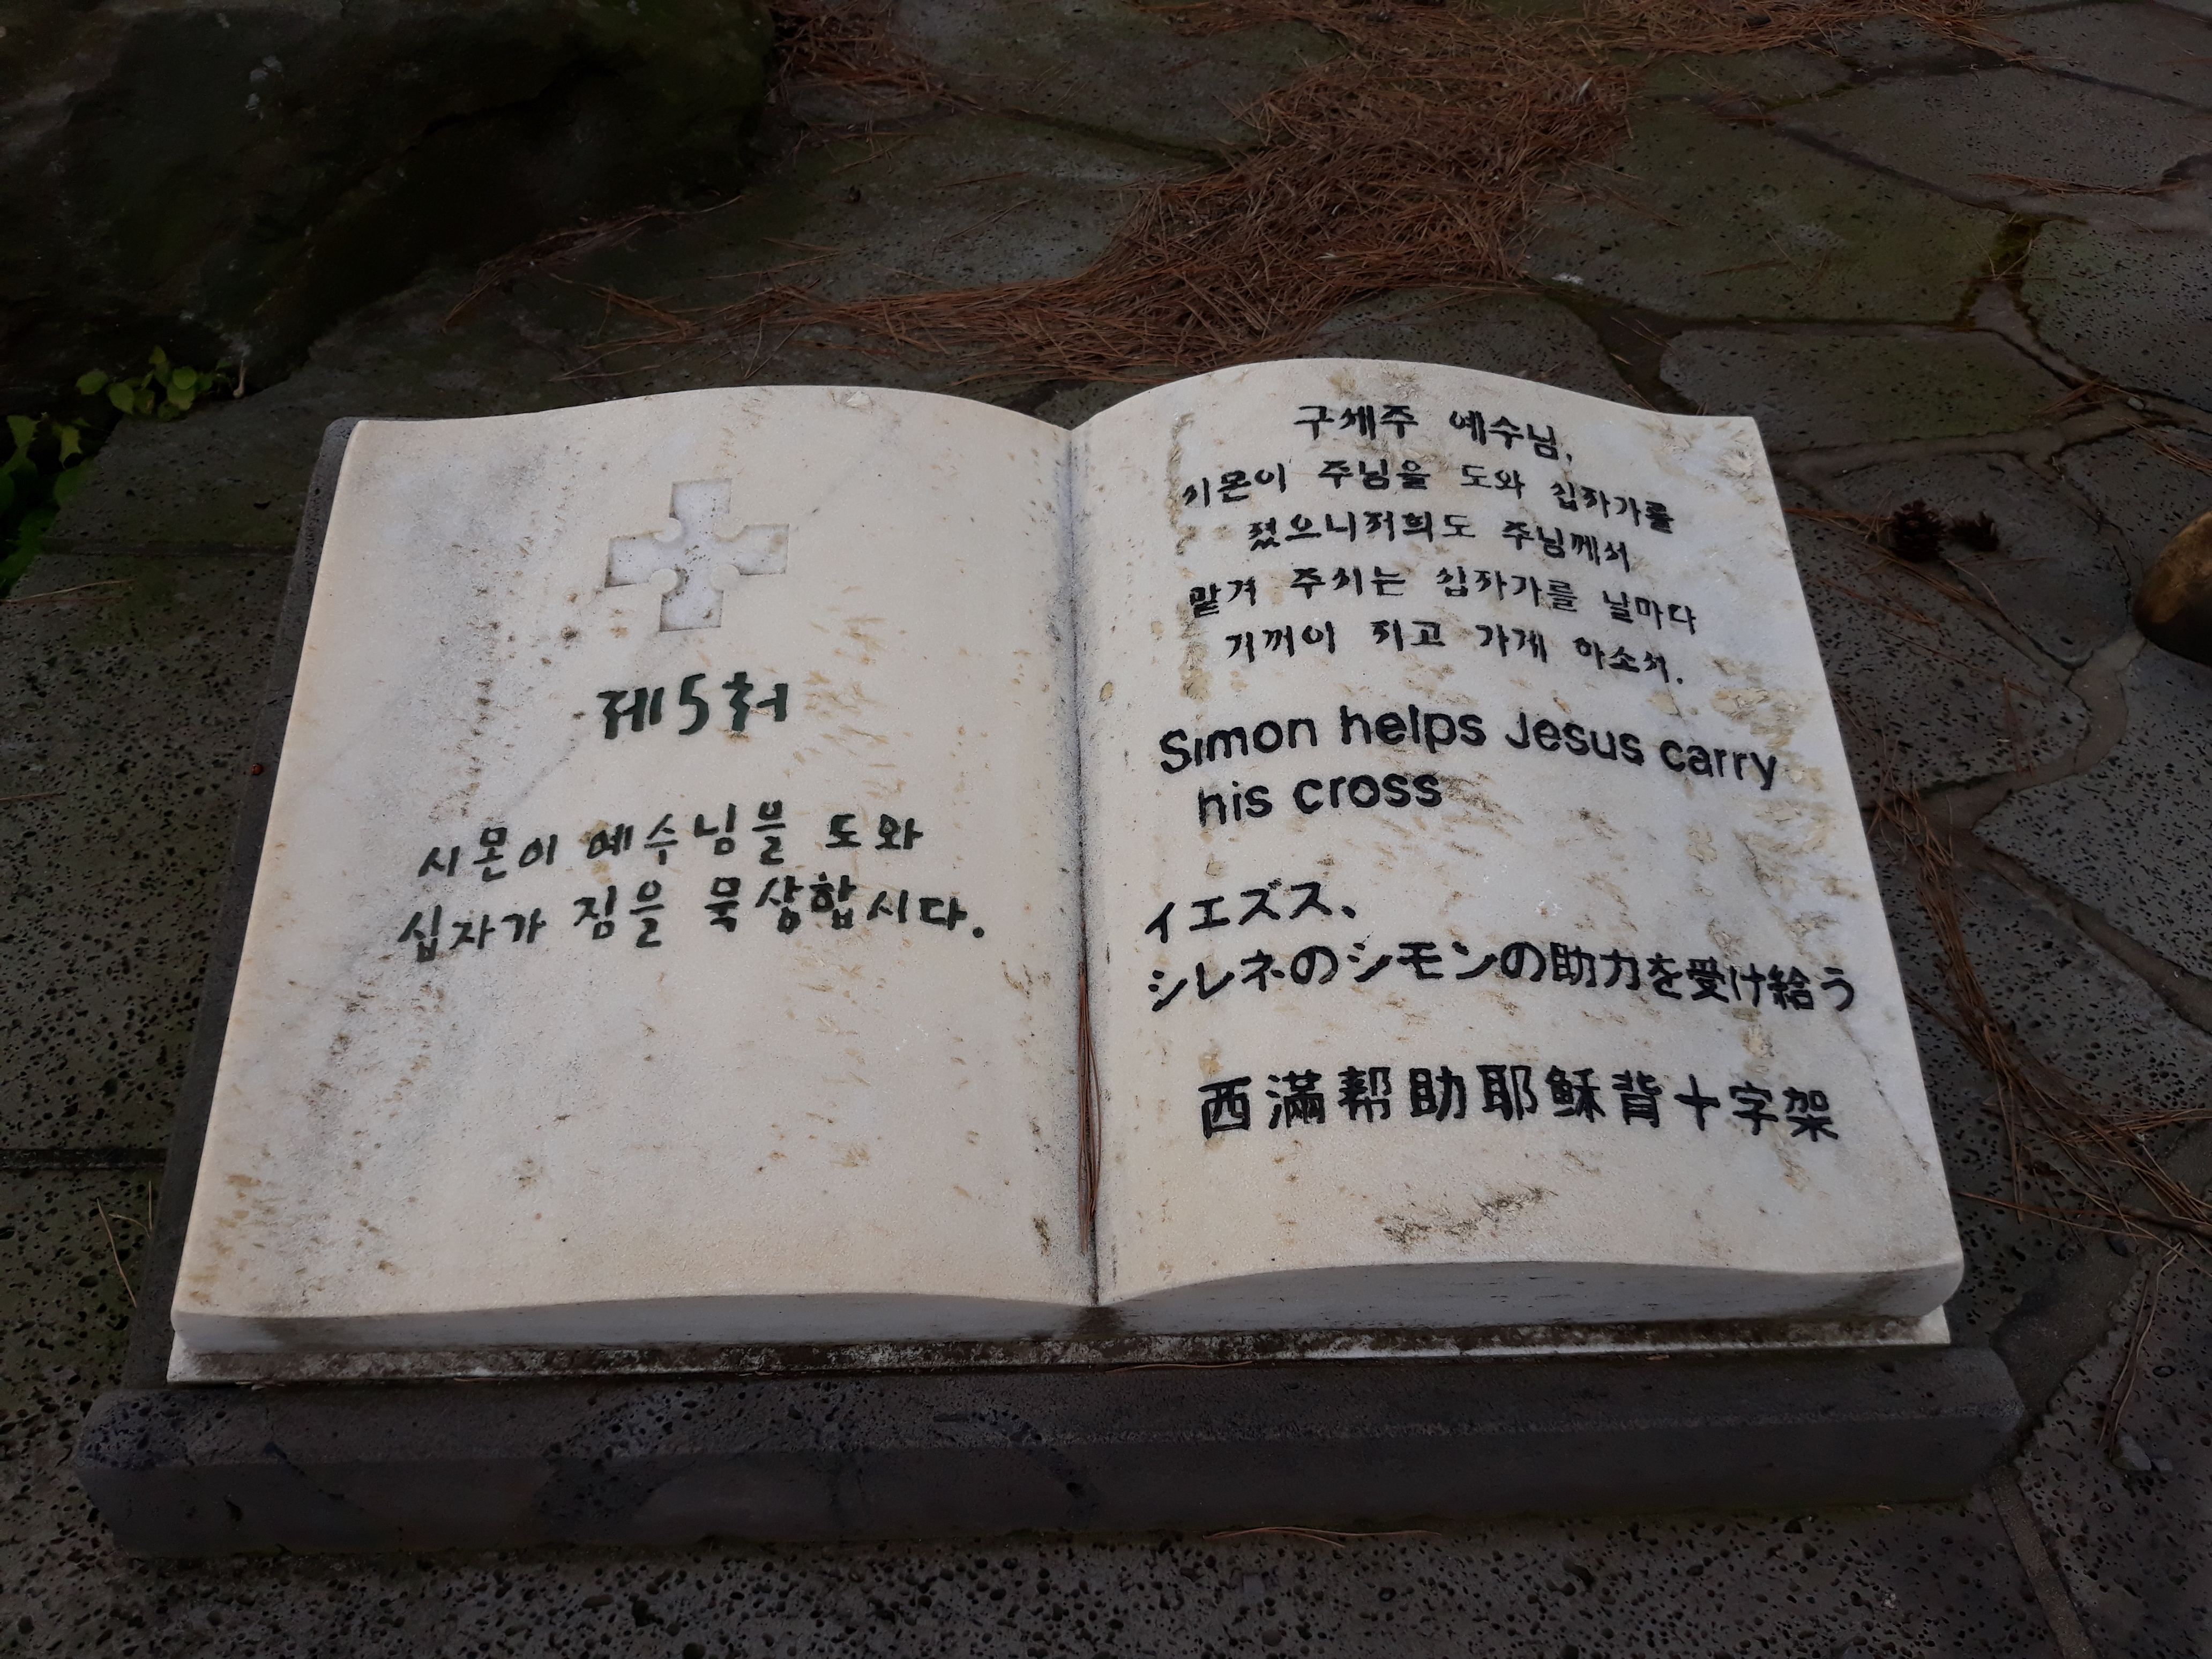 제5처
시몬이 예수님을 도와
십자가 짐을 묵상합시다.
구세주 예수님,
시몬이 주님을 도와 십자가를
졌으니저희도 주님께서
맡겨 주시는 십자가를 날마다
기꺼이 지고 가게 하소서.
Simon helps Jesus carry
his cross
イエズス、
シレネのシモンの助力を受け給う
西滿帮助耶稣背十字架